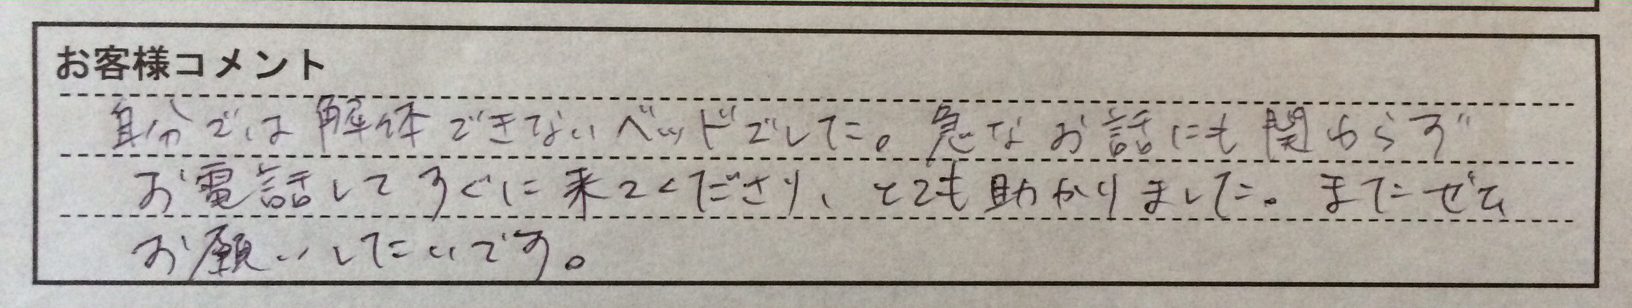 お客様コメント
自分では解体できないベッドでした。急なお話にも関わらず
お電話してすぐに来てくださり、とても助かりました。またぜひ
お願いしたいです。